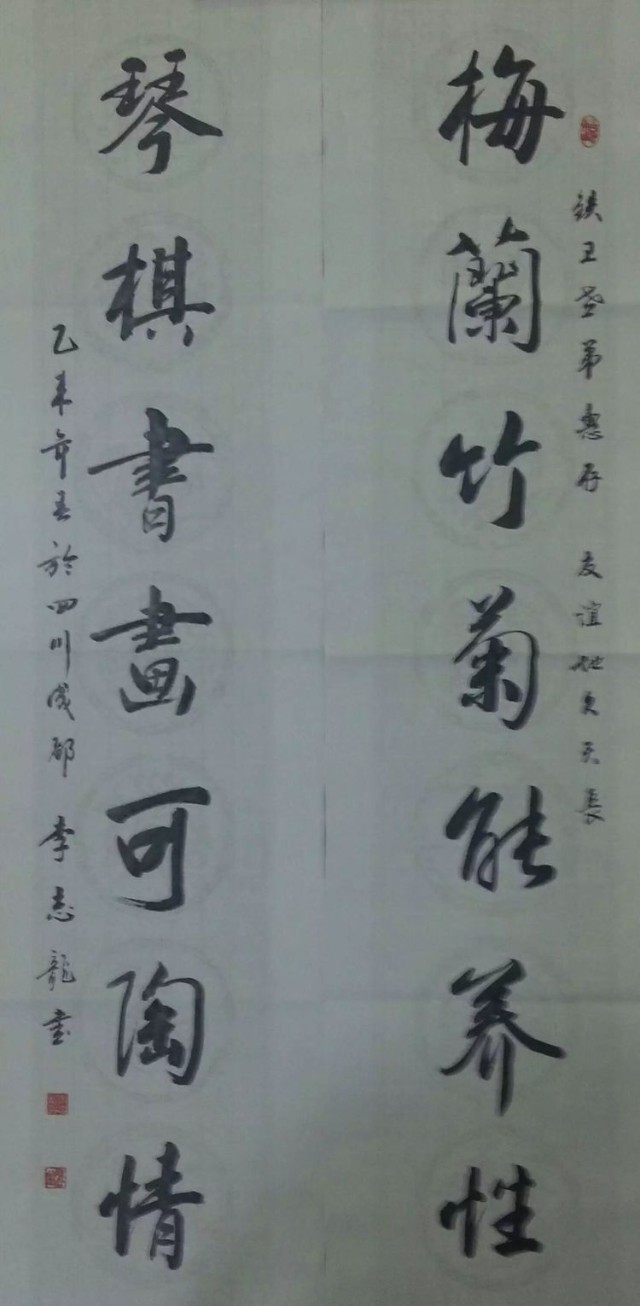 铁卫贤弟惠存 友谊地久天長
梅蘭竹菊能养性
琴棋書畫可陶情
乙未年春於四川成都 李志龍書